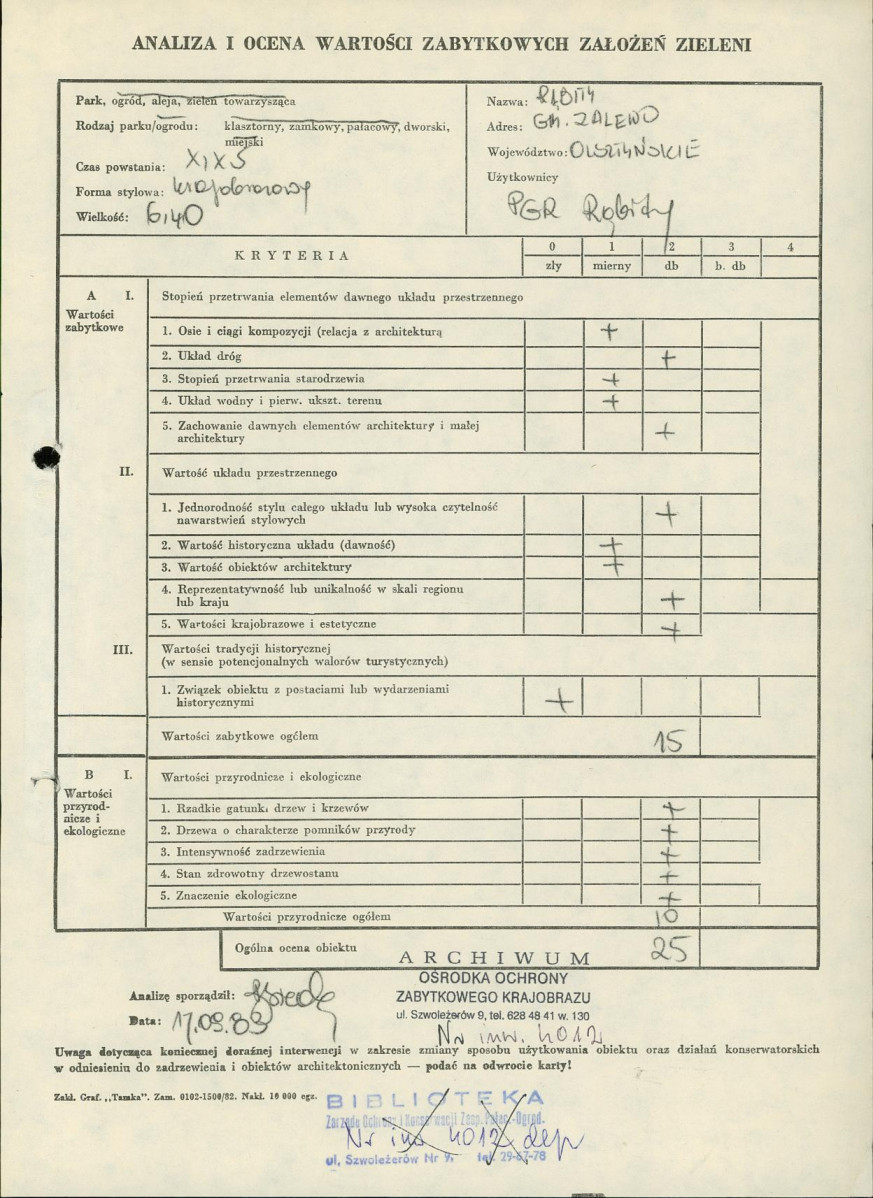 ANALIZA I OCENA WARTOŚCI ZABYTKOWYCH ZAŁOŻEŃ ZIELENI
Park, ogród, aleja, zieleń towarzysząca
Rodzaj parku/ogrodu: klasztorny, zamkowy, pałacowy, dworski,
miejski
Czas powstania: XIX S
Forma stylowa: krajobrazowy
Wielkość: 6,40
Nazwa: RĄBITY
Adres: GM. ZALEWO
Województwo: OLSZTYŃSKIE
Użytkownicy
PGR Rąbity
KRYTERIA
0 1 2 3 4
zły mierny db b. db
A I. Stopień przetrwania elementów dawnego układu przestrzennego
Wartości
zabytkowe
1. Osie i ciągi kompozycji (relacja z architekturą +
2. Układ dróg +
3. Stopień przetrwania starodrzewia +
4. Układ wodny i pierw. ukszt. terenu +
5. Zachowanie dawnych elementów architektury i małej
architektury +
II. Wartość układu przestrzennego
1. Jednorodność stylu całego układu lub wysoka czytelność
nawarstwień stylowych +
2. Wartość historyczna układu (dawność) +
3. Wartość obiektów architektury +
4. Reprezentatywność lub unikalność w skali regionu
lub kraju +
5. Wartości krajobrazowe i estetyczne +
III. Wartości tradycji historycznej
(w sensie potencjonalnych walorów turystycznych)
1. Związek obiektu z postaciami lub wydarzeniami
historycznymi +
Wartości zabytkowe ogółem 15
B I. Wartości przyrodnicze i ekologiczne
Wartości
przyrod-
nicze i
ekologiczne
1. Rzadkie gatunki drzew i krzewów +
2. Drzewa o charakterze pomników przyrody +
3. Intensywność zadrzewienia +
4. Stan zdrowotny drzewostanu +
5. Znaczenie ekologiczne +
Wartości przyrodnicze ogółem 10
Ogólna ocena obiektu 25
ARCHIWUM
OŚRODKA OCHRONY
ZABYTKOWEGO KRAJOBRAZU
ul. Szwoleżerów 9, tel. 628 48 41 w. 130
Nr inw. 4012
Analizę sporządził:
Data: 17.09.83
Uwaga dotycząca koniecznej doraźnej interwencji w zakresie zmiany sposobu użytkowania obiektu oraz działań konserwatorskich
w odniesieniu do zadrzewienia i obiektów architektonicznych — podać na odwrocie karty!
Zakł. Graf. „Tamka". Zam. 0102-1500/82. Nakł. 10 000 egz.
BIBLIOTEKA
Zarządu Ochrony i Konserwacji Zesp. Pałac.-Ogrod.
Nr inw 4012 dep
ul. Szwoleżerów Nr 9, tel. 29-67-78